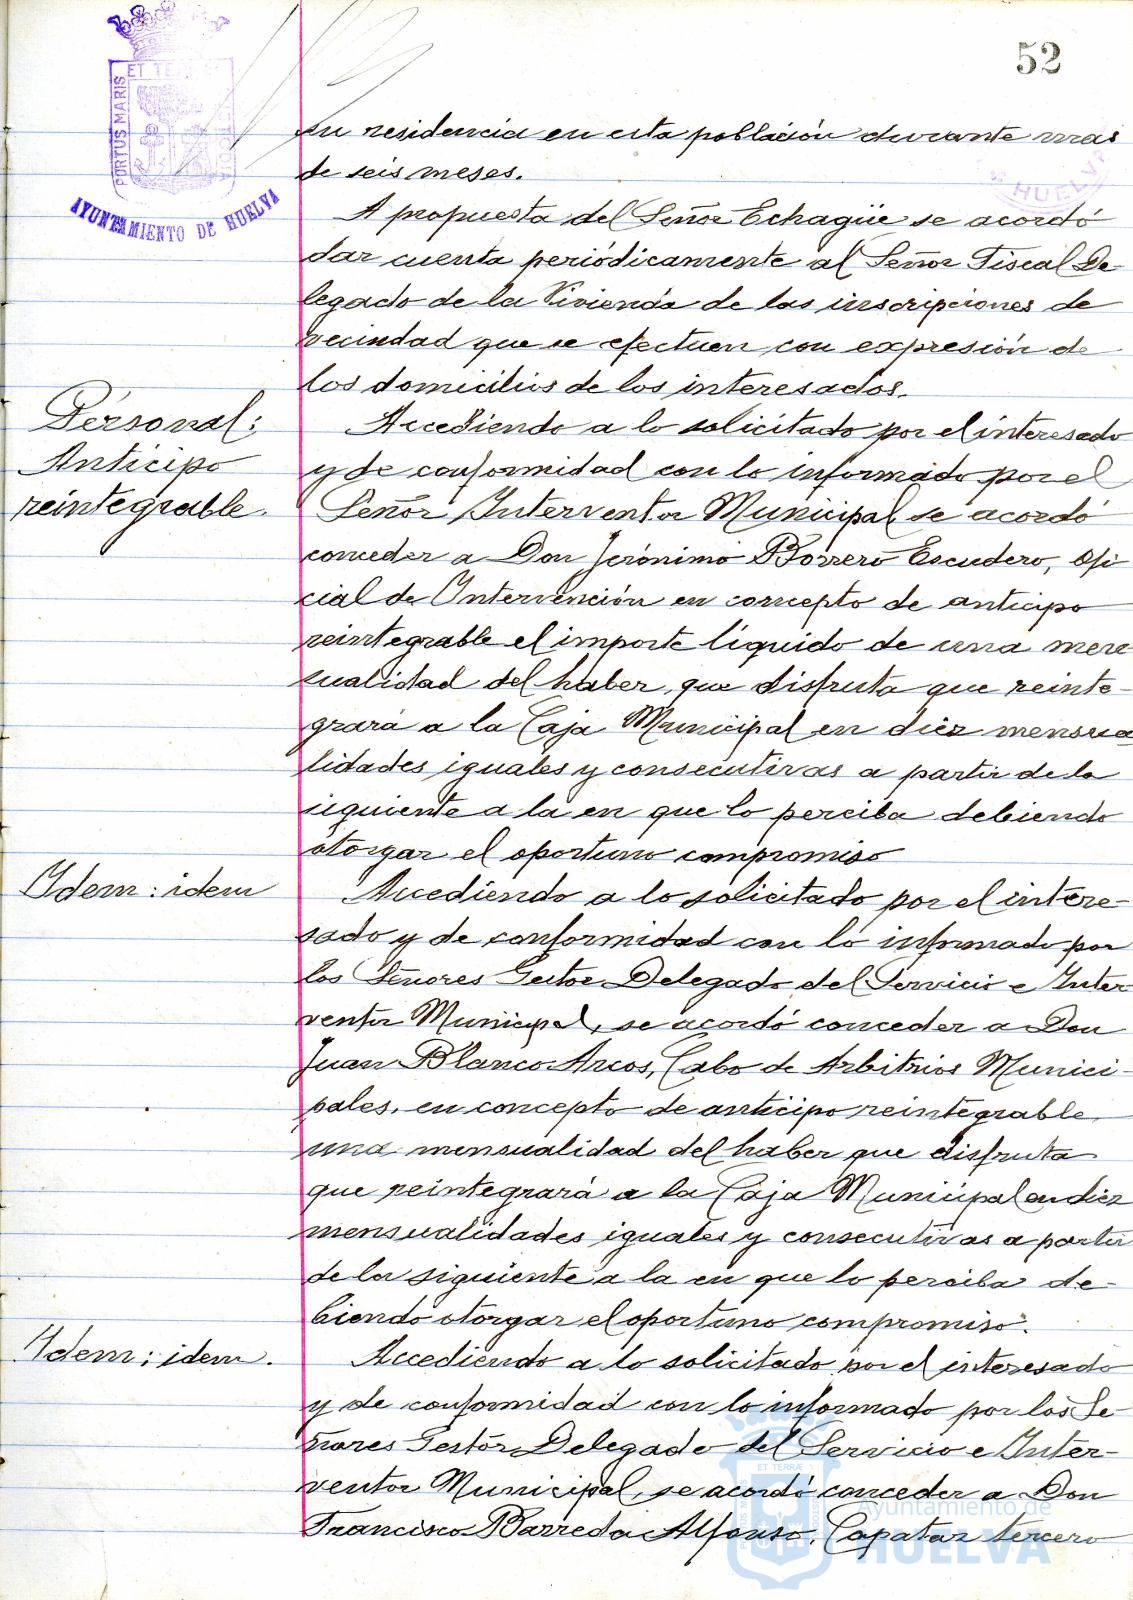 52
PORTUS MARIS
ET TERRÆ
AYUNTAMIENTO DE HUELVA
HUELVA
su residencia en esta población durante mas
de seis meses.
A propuesta del Señor Echagüe se acordó
dar cuenta periódicamente al Señor Fiscal De-
legado de la Vivienda de las inscripciones de
vecindad que se efectuen con expresión de
los domicilios de los interesados.
Personal:
Anticipo
reintegrable.
Accediendo a lo solicitado por el interesado
y de conformidad con lo informado por el
Señor Interventor Municipal se acordó
conceder a Don Jerónimo Borrero Escudero, Ofi
cial de Intervención en concepto de anticipo
reintegrable el importe líquido de una men
sualidad del haber que disfruta que reinte-
grará a la Caja Municipal en diez mensua
lidades iguales y consecutivas a partir de la
siguiente a la en que lo perciba debiendo
otorgar el oportuno compromiso
Idem: idem
Accediendo a lo solicitado por el intere-
sado y de conformidad con lo informado por
los Señores Gestor Delegado del Servicio e Inter
ventor Municipal, se acordó conceder a Don
Juan Blanco Arcos, Cabo de Arbitrios Munici-
pales, en concepto de anticipo reintegrable
una mensualidad del haber que disfruta
que reintegrará a la Caja Municipal en diez
mensualidades iguales y consecutivas a partir
de la siguiente a la en que lo perciba de-
biendo otorgar el oportuno compromiso.
Idem: idem.
Accediendo a lo solicitado por el interesado
y de conformidad con lo informado por los Se-
ñores Gestor Delegado del Servicio e Inter-
ventor Municipal, se acordó conceder a Don
Francisco Barreda Alfonso, Capataz tercero
Ayuntamiento de
HUELVA